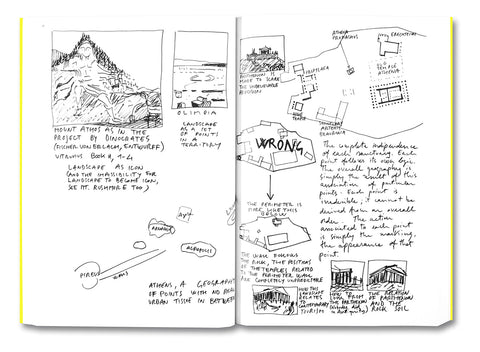 MOUNT ATHOS AS IN THE
PROJECT BY DINOCRATES
(FISCHER VON ERLACH, ENTWURFF)
VITRUVIUS BOOK II, 1-4
LANDSCAPE AS ICON
(AND THE IMPOSSIBILITY FOR
LANDSCAPE TO BECOME ICON,
SEE MT. RUSHMORE TOO)
OLIMPIA
LANDSCAPE
AS A SET
OF POINTS
IN A
TERRITORY
ACROPOLIS
PIREUS
ATHENS, A GEOGRAPHY
OF POINTS WITH NO REAL
URBAN TISSUE IN BETWEEN
PARTHENON IS
THE UNBELIEVABLE
ATHENA
PROMACHOS
ERECHTEION
PROPILEA
ATHENA
WRONG
THE PERIMETER IS
MORE LIKE THIS
BELOW
The complete independence
of each sanctuary. Each
point follows its own logic.
The overall geography is
simply the result of this
accumulation of particular
points. Each point is
it cannot be
derived from an overall
order. The action
associated to each point
is simply the
the appearance of that
point.
THE POSITIONS
OF THE TEMPLES RELATED
TO THE PERIMETER WALL
ARE COMPLETELY UNPREDICTABLE
HOW THIS
LANDSCAPE
RELATES
TO
CONTEMPORARY
TOURISM
HOW TO
LOOK FROM
THE PARTHENON
THE RELATION
OF PARTHENON
AND THE
ROCK SOIL